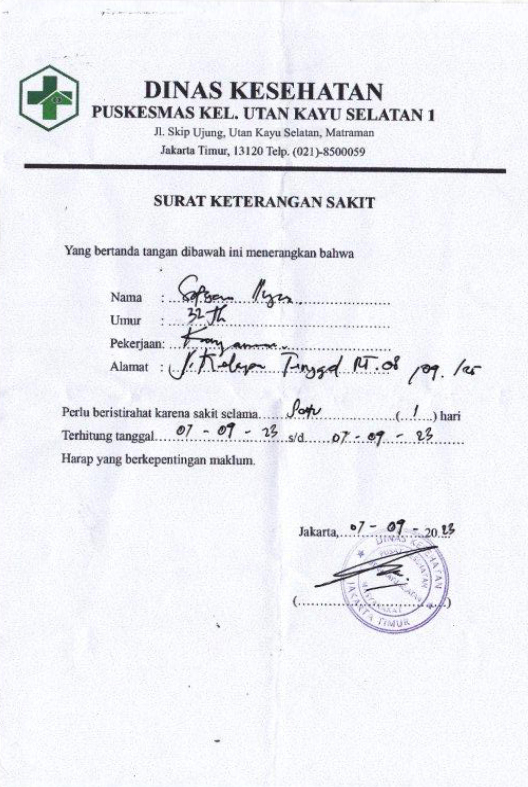 DINAS KESEHATAN
PUSKESMAS KEL. UTAN KAYU SELATAN 1
Jl. Skip Ujung, Utan Kayu Selatan, Matraman
Jakarta Timur, 13120 Telp. (021)-8500059
SURAT KETERANGAN SAKIT
Yang bertanda tangan dibawah ini menerangkan bahwa
Nama :
Umur : 32 Th
Pekerjaan: Karyawan.
Alamat : Jl. Kelapa Tinggal RT.08 /09. /25
Perlu beristirahat karena sakit selama Satu ( 1 ) hari
Terhitung tanggal 07 - 09 - 23 s/d 07 - 09 - 23
Harap yang berkepentingan maklum.
Jakarta, 07 - 09 - 2023
DINAS KESEHATAN
JAKARTA TIMUR